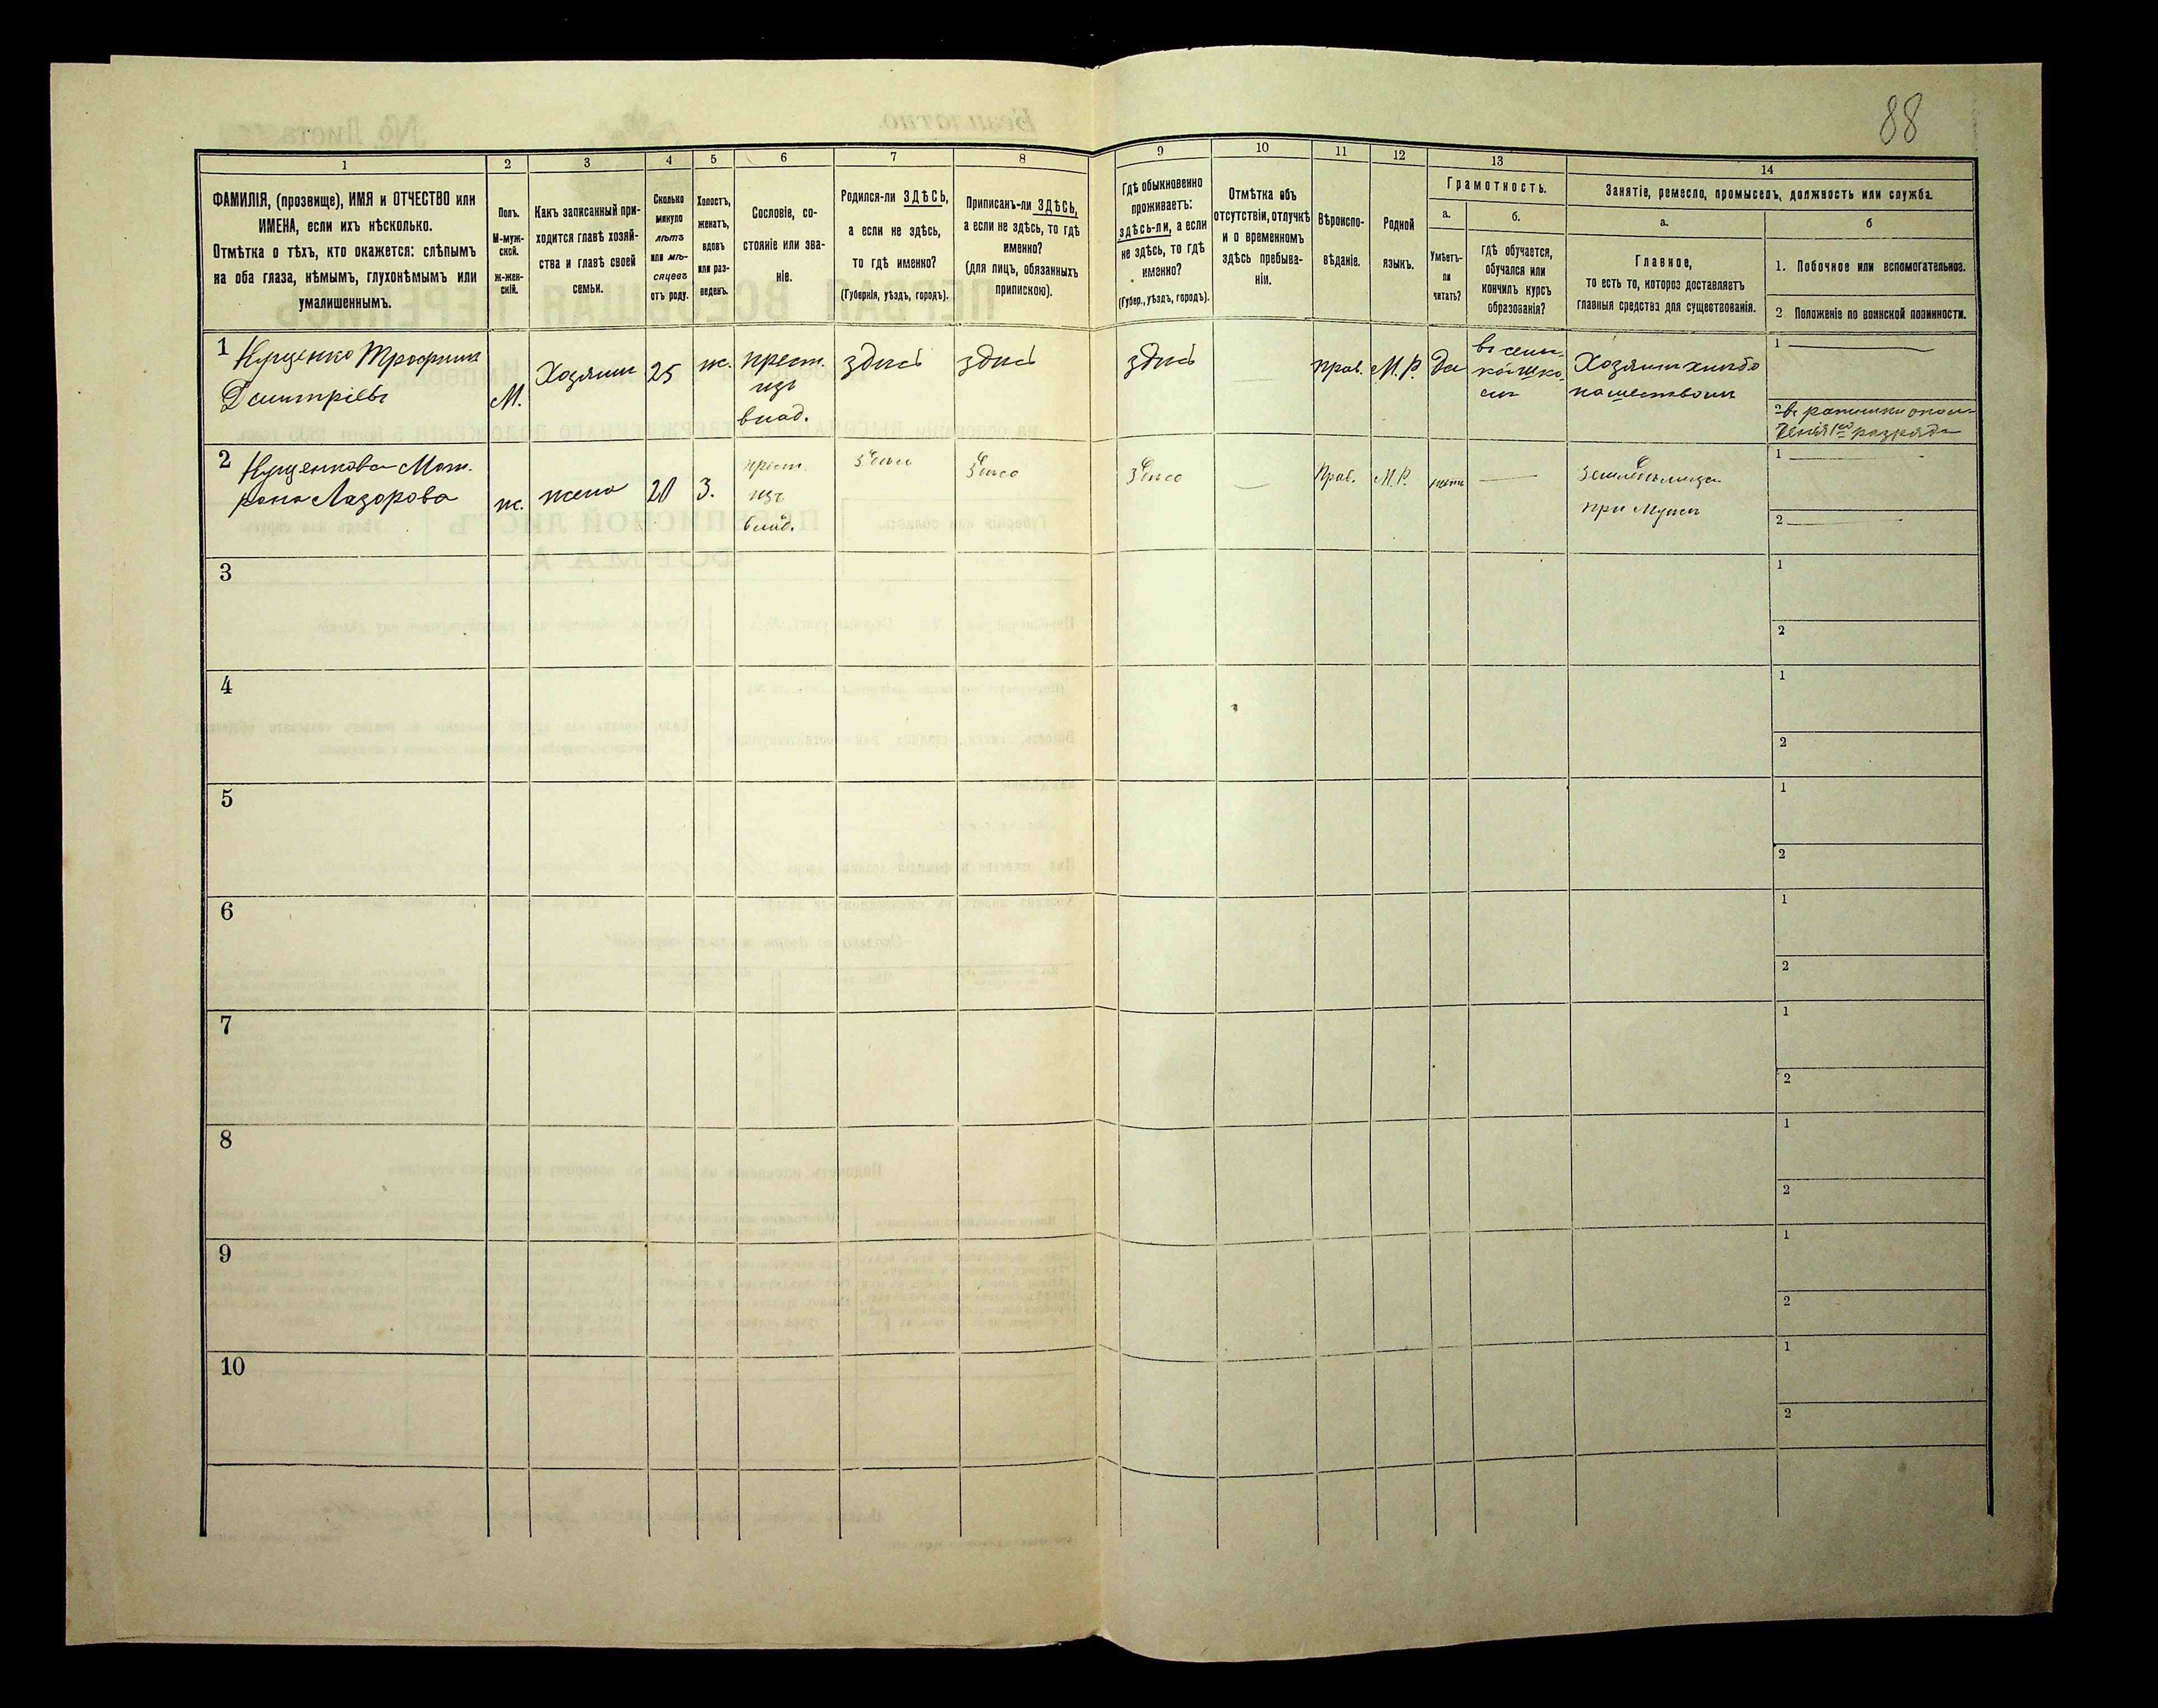 88
1
2
3
4
5
6
7
8
9
10
11
12
13
14
ФАМИЛІЯ, (прозвище), ИМЯ и ОТЧЕСТВО или
ИМЕНА, если ихъ нѣсколько.
Отмѣтка о тѣхъ, кто окажется: слѣпымъ
на оба глаза, нѣмымъ, глухонѣмымъ или
умалишеннымъ.
Полъ.
М-муж-
ской.
ж-жен-
скій.
Какъ записанный при-
ходится главѣ хозяй-
ства и главѣ своей
семьи.
Сколько
минуло
лѣтъ
или мѣ-
сяцевъ
отъ роду.
Холостъ,
женатъ,
вдовъ
или раз-
веденъ.
Сословіе, со-
стояніе или зва-
ніе.
Родился-ли ЗДѢСЬ,
а если не здѣсь,
то гдѣ именно?
(Губернія, уѣздъ, городъ).
Приписанъ-ли ЗДѢСЬ,
а если не здѣсь, то гдѣ
именно?
(для лицъ, обязанныхъ
припискою).
Гдѣ обыкновенно
проживаетъ:
здѣсь-ли, а если
не здѣсь, то гдѣ
именно?
(Губер., уѣздъ, городъ).
Отмѣтка объ
отсутствіи, отлучкѣ
и о временномъ
здѣсь пребыва-
ніи.
Вѣроиспо-
вѣданіе.
Родной
языкъ.
Грамотность.
а.
Умѣетъ-
ли
читать?
б.
гдѣ обучается,
обучался или
кончилъ курсъ
образованія?
Занятіе, ремесло, промыселъ, должность или служба.
а.
Главное,
то есть то, которое доставляетъ
главныя средства для существованія.
б
1. Побочное или вспомогательное.
2 Положеніе по воинской повинности.
1 Куценко Трофимъ
Дмитріевъ
М.
Хозяинъ
25
ж.
крест.
изъ
влад.
здѣсь
здѣсь
здѣсь
прав.
М.Р.
да
въ сель-
кой шко-
лѣ
Хозяинъ хлѣбо
пашествомъ
1
2 въ ратники опол-
ченія 1го разряда
2 Куценкова Мат.
рона Лазорова
ж.
жена
20
З.
крест.
изъ
влад.
здѣсь
здѣсь
здѣсь
Прав.
М.Р.
нѣтъ
земледѣлица
при мужѣ
1
2
3
1
2
4
1
2
5
1
2
6
1
2
7
1
2
8
1
2
9
1
2
10
1
2